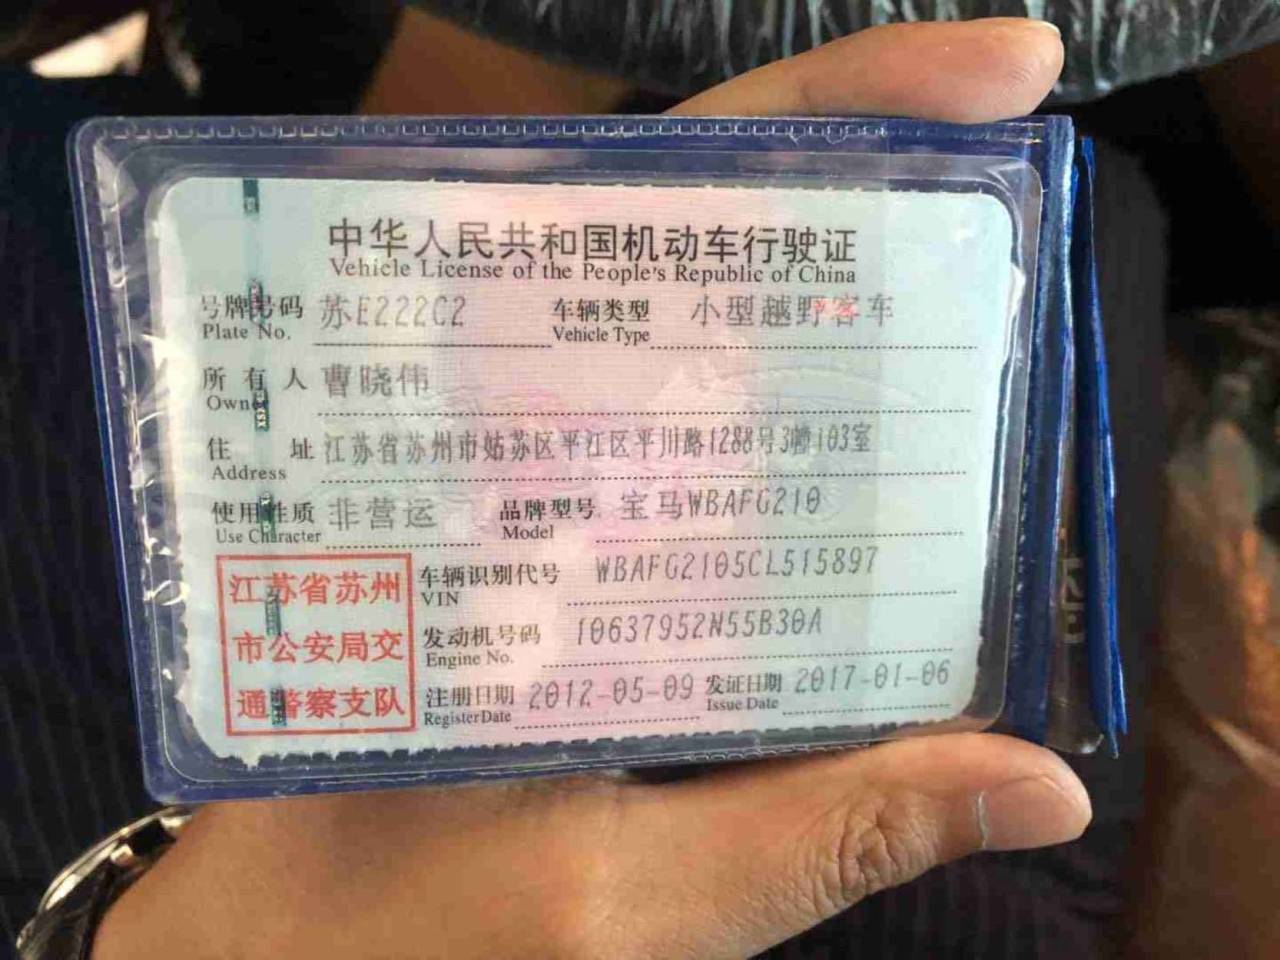 中华人民共和国机动车行驶证
Vehicle License of the People's Republic of China
号牌号码 苏E222C2 车辆类型 小型越野客车
Plate No. Vehicle Type
所有人 曹晓伟
Owner
住址 江苏省苏州市姑苏区平江区平川路1288号3幢103室
Address
使用性质 非营运 品牌型号 宝马WBAFG210
Use Character Model
江苏省苏州
市公安局交
通警察支队
车辆识别代号 WBAFG2105CL515897
VIN
发动机号码 10637952N55B30A
Engine No.
注册日期 2012-05-09 发证日期 2017-01-06
Register Date Issue Date